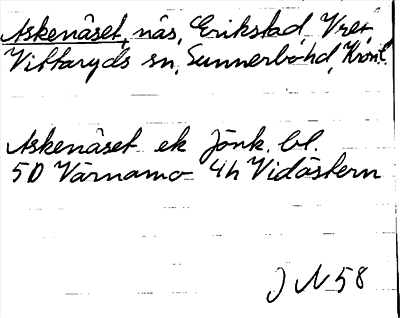 Askenäset, näs, Erikstad, Vret,
Vittaryds sn, Sunnerbo hd, Kron.l.
Askenäset ek Jönk. bl.
5D Värnamo 4h Vidöstern
J N 58